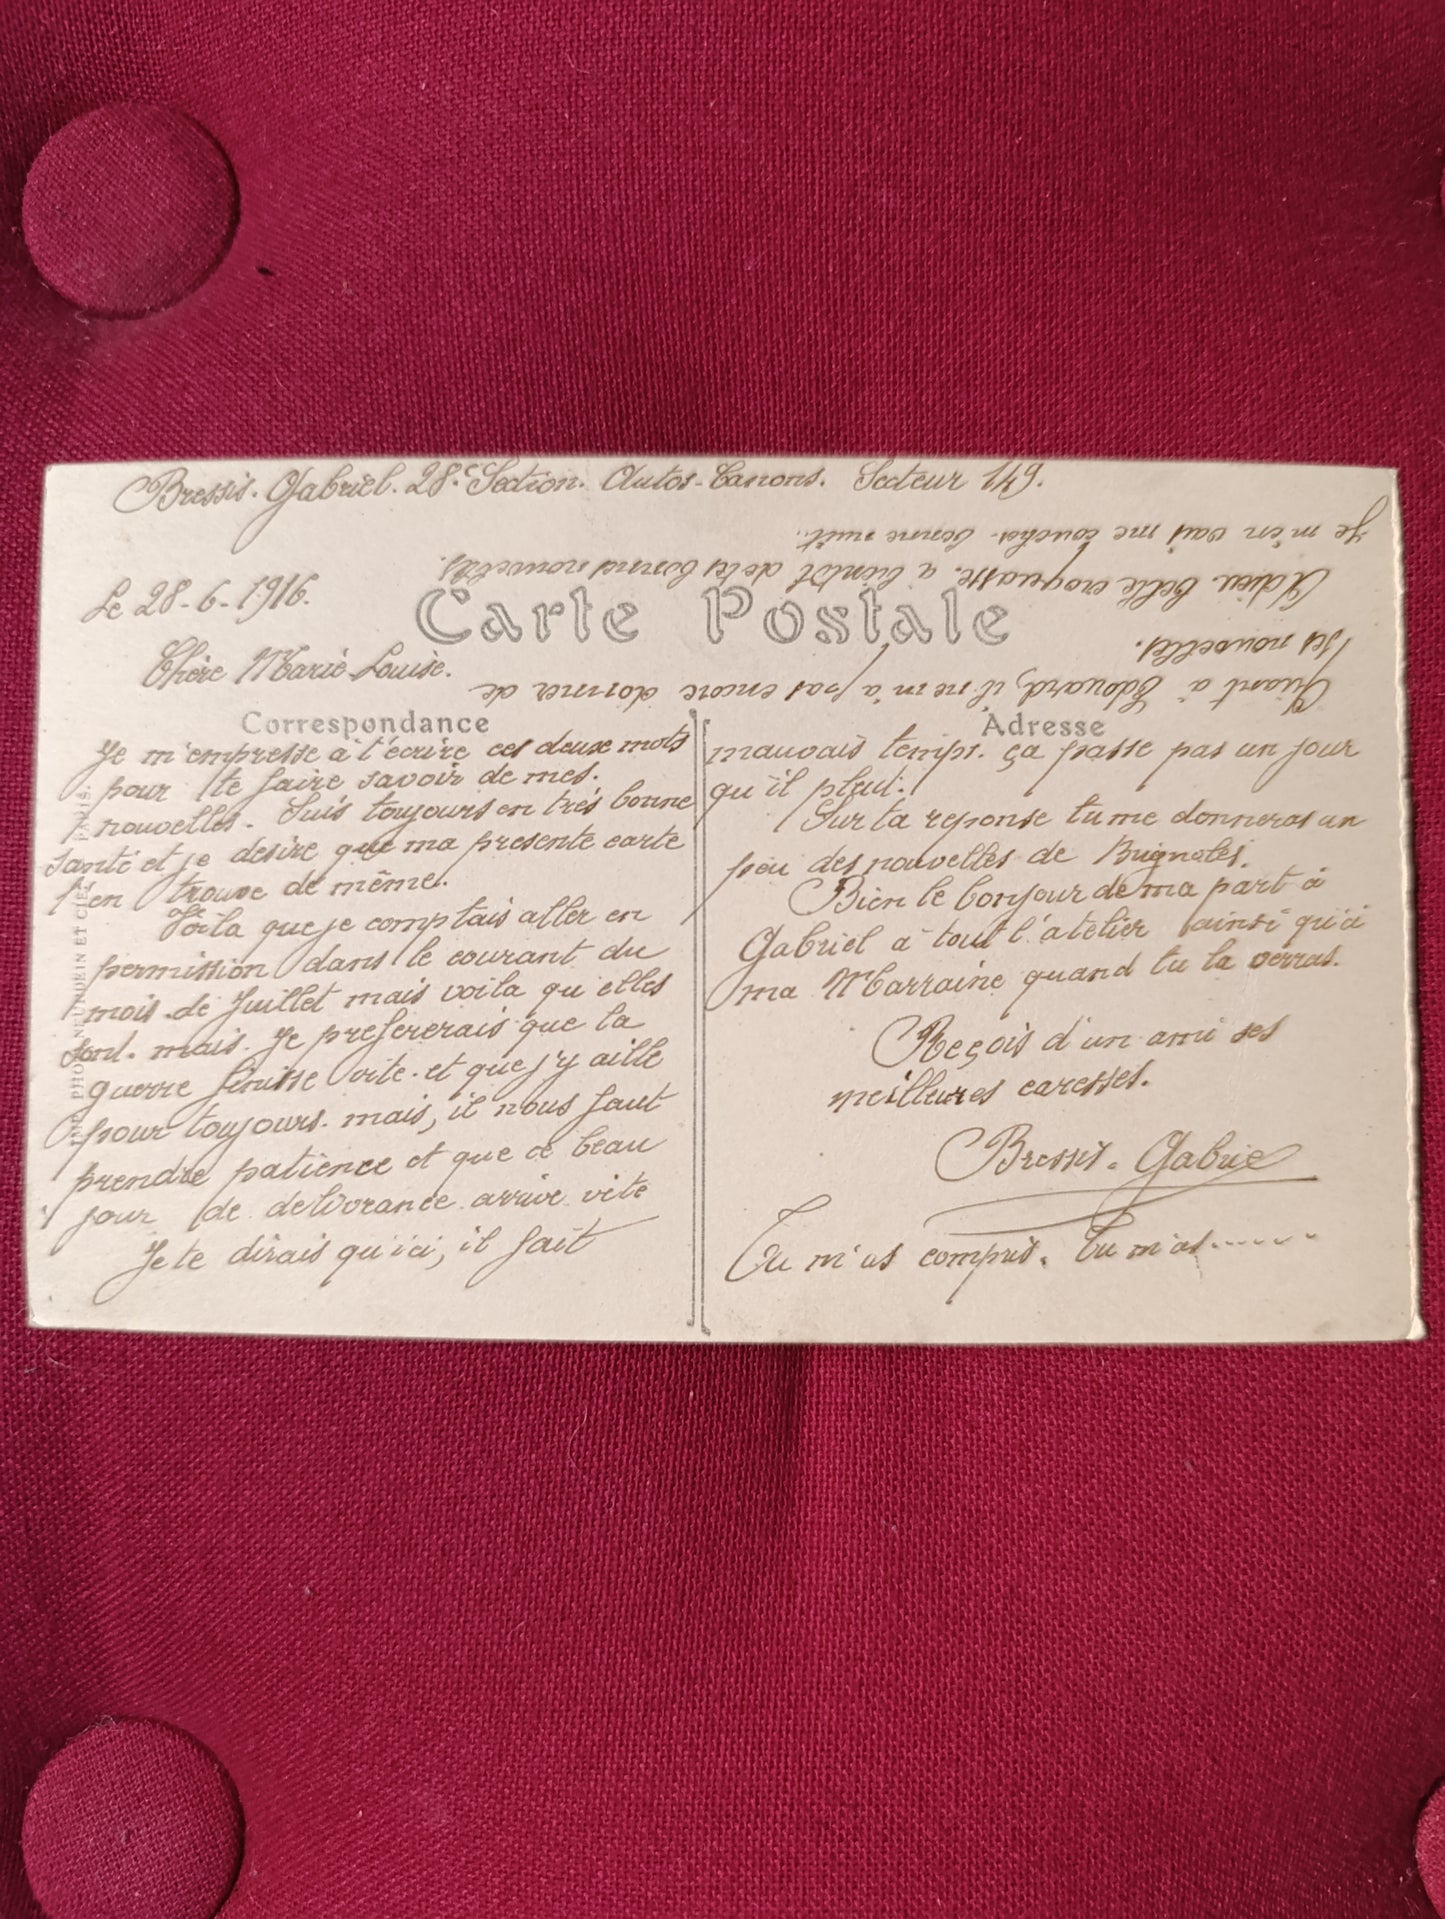 Bressis. Gabriel. 28e Section. Autos-Canons. Secteur 149.
Le 28-6-1916.
Carte Postale
Chère Marie Louise.
Correspondance
Je m'empresse à t'écrire ces deux mots
pour te faire savoir de mes.
nouvelles. Suis toujours en très bonne
santé et je desire que ma presente carte
t'en trouve de même.
Voila que je comptais aller en
permission dans le courant du
mois de Juillet mais voila qu'elles
sont. mais. Je prefererais que la
guerre finisse vite. et que j'y aille
pour toujours. mais, il nous faut
prendre patience et que ce beau
jour de delivrance arrive vite
Je te dirais qu'ici, il fait
Adresse
mauvais temps. ça passe pas un jour
qu'il pleut.
Sur ta reponse tu me donneras un
peu des nouvelles de Bugnotes.
Bien le bonjour de ma part à
Gabriel à tout l'atelier ainsi qu'à
ma Marraine quand tu la verras.
Reçois d'un ami ses
meilleures caresses.
Bressis. Gabrie
Tu m'as compris. Tu m'as......
Quant à Edouard, il ne m'a pas encore donner de
ses nouvelles.
Adieu belle croquasse. a bientôt de tes bonnes nouvelles.
Je m'en vais me coucher bonne nuit..
IMP. PHOT. NEURDEIN ET CIE. PARIS.